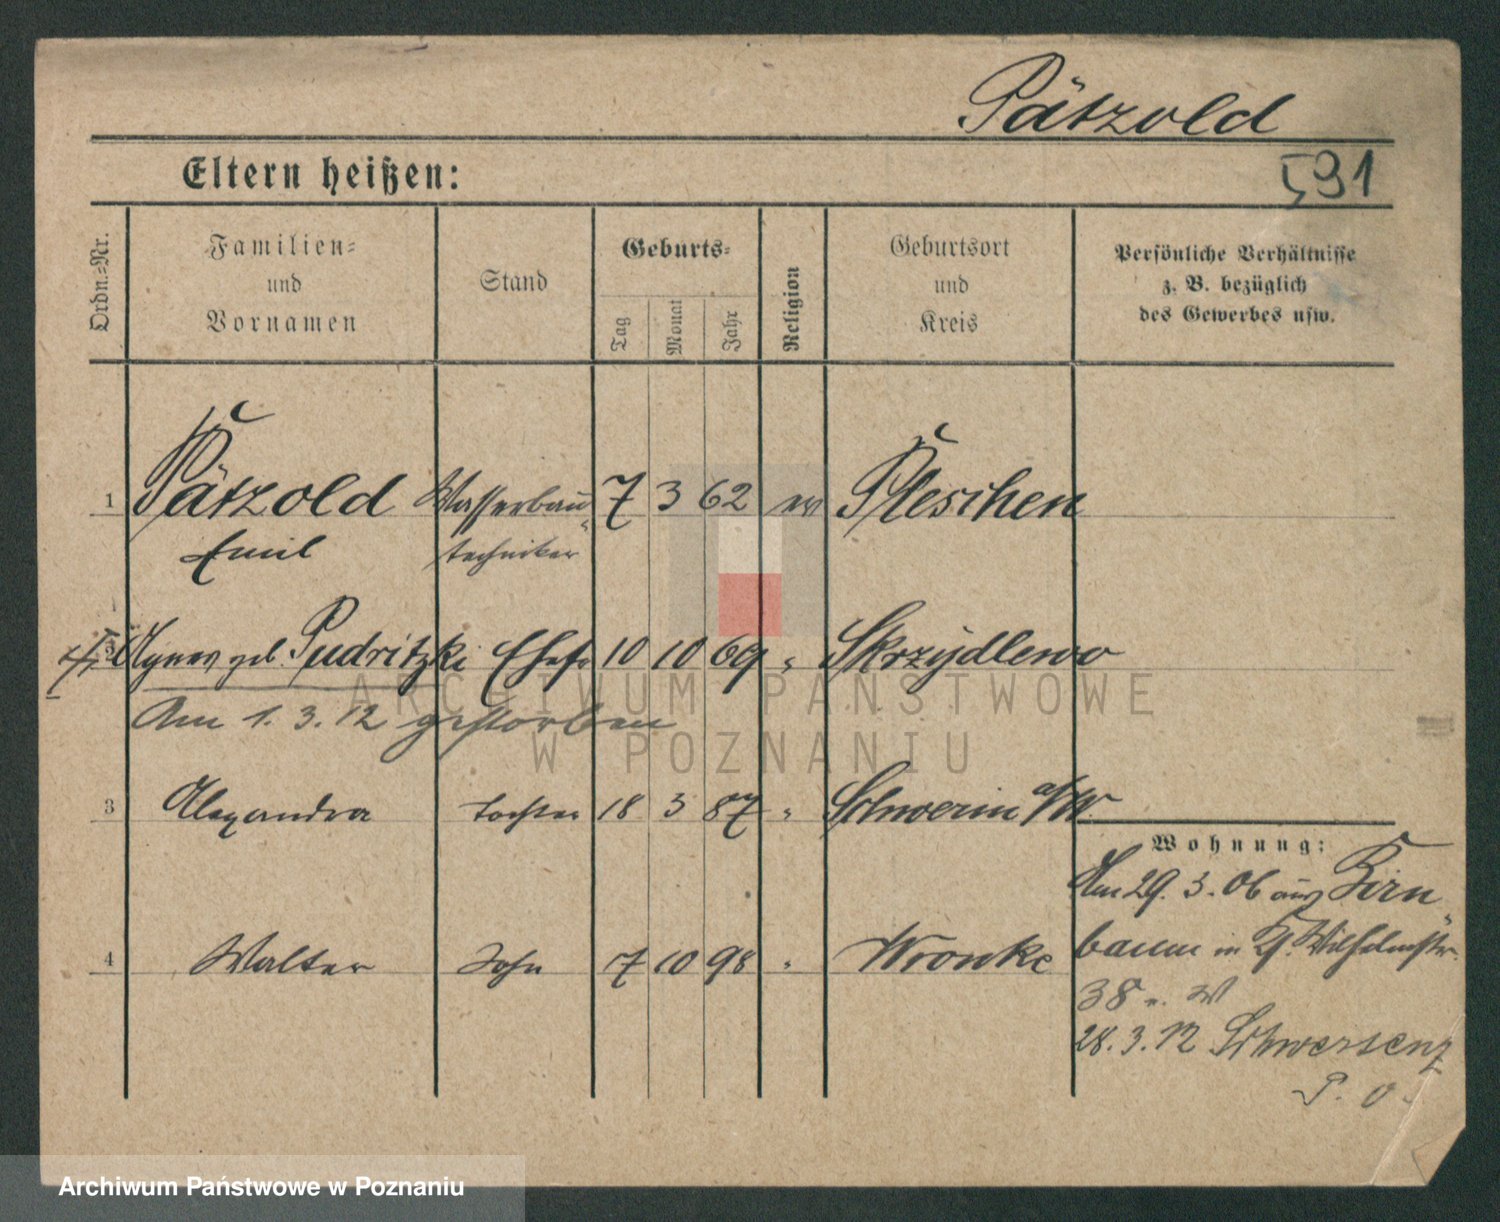 Pätzold
Eltern heißen:
591
Ordn.-Nr.
Familien-
und
Vornamen
Stand
Geburts-
Tag
Monat
Jahr
Religion
Geburtsort
und
Kreis
Persönliche Verhältnisse
z. B. bezüglich
des Gewerbes usw.
1 Pätzold Wasserbau 7 3 62 ev Pleschen
Emil techniker
2 Agnes geb. Pudritzki Ehefr 10 10 69 " Skrzydlewo
Am 1. 3. 12 gestorben
3 Alexandra Tochter 18 3 87 " Schwerin a/W.
4 Walter Sohn 7 10 98 " Wronke
Wohnung:
Am 29. 3. 06 aus Birn
baum in Kl. Wilhelmstr.
38 W
28. 3. 12 Schwersenz
P. O.
ARCHIWUM PAŃSTWOWE
W POZNANIU
Archiwum Państwowe w Poznaniu